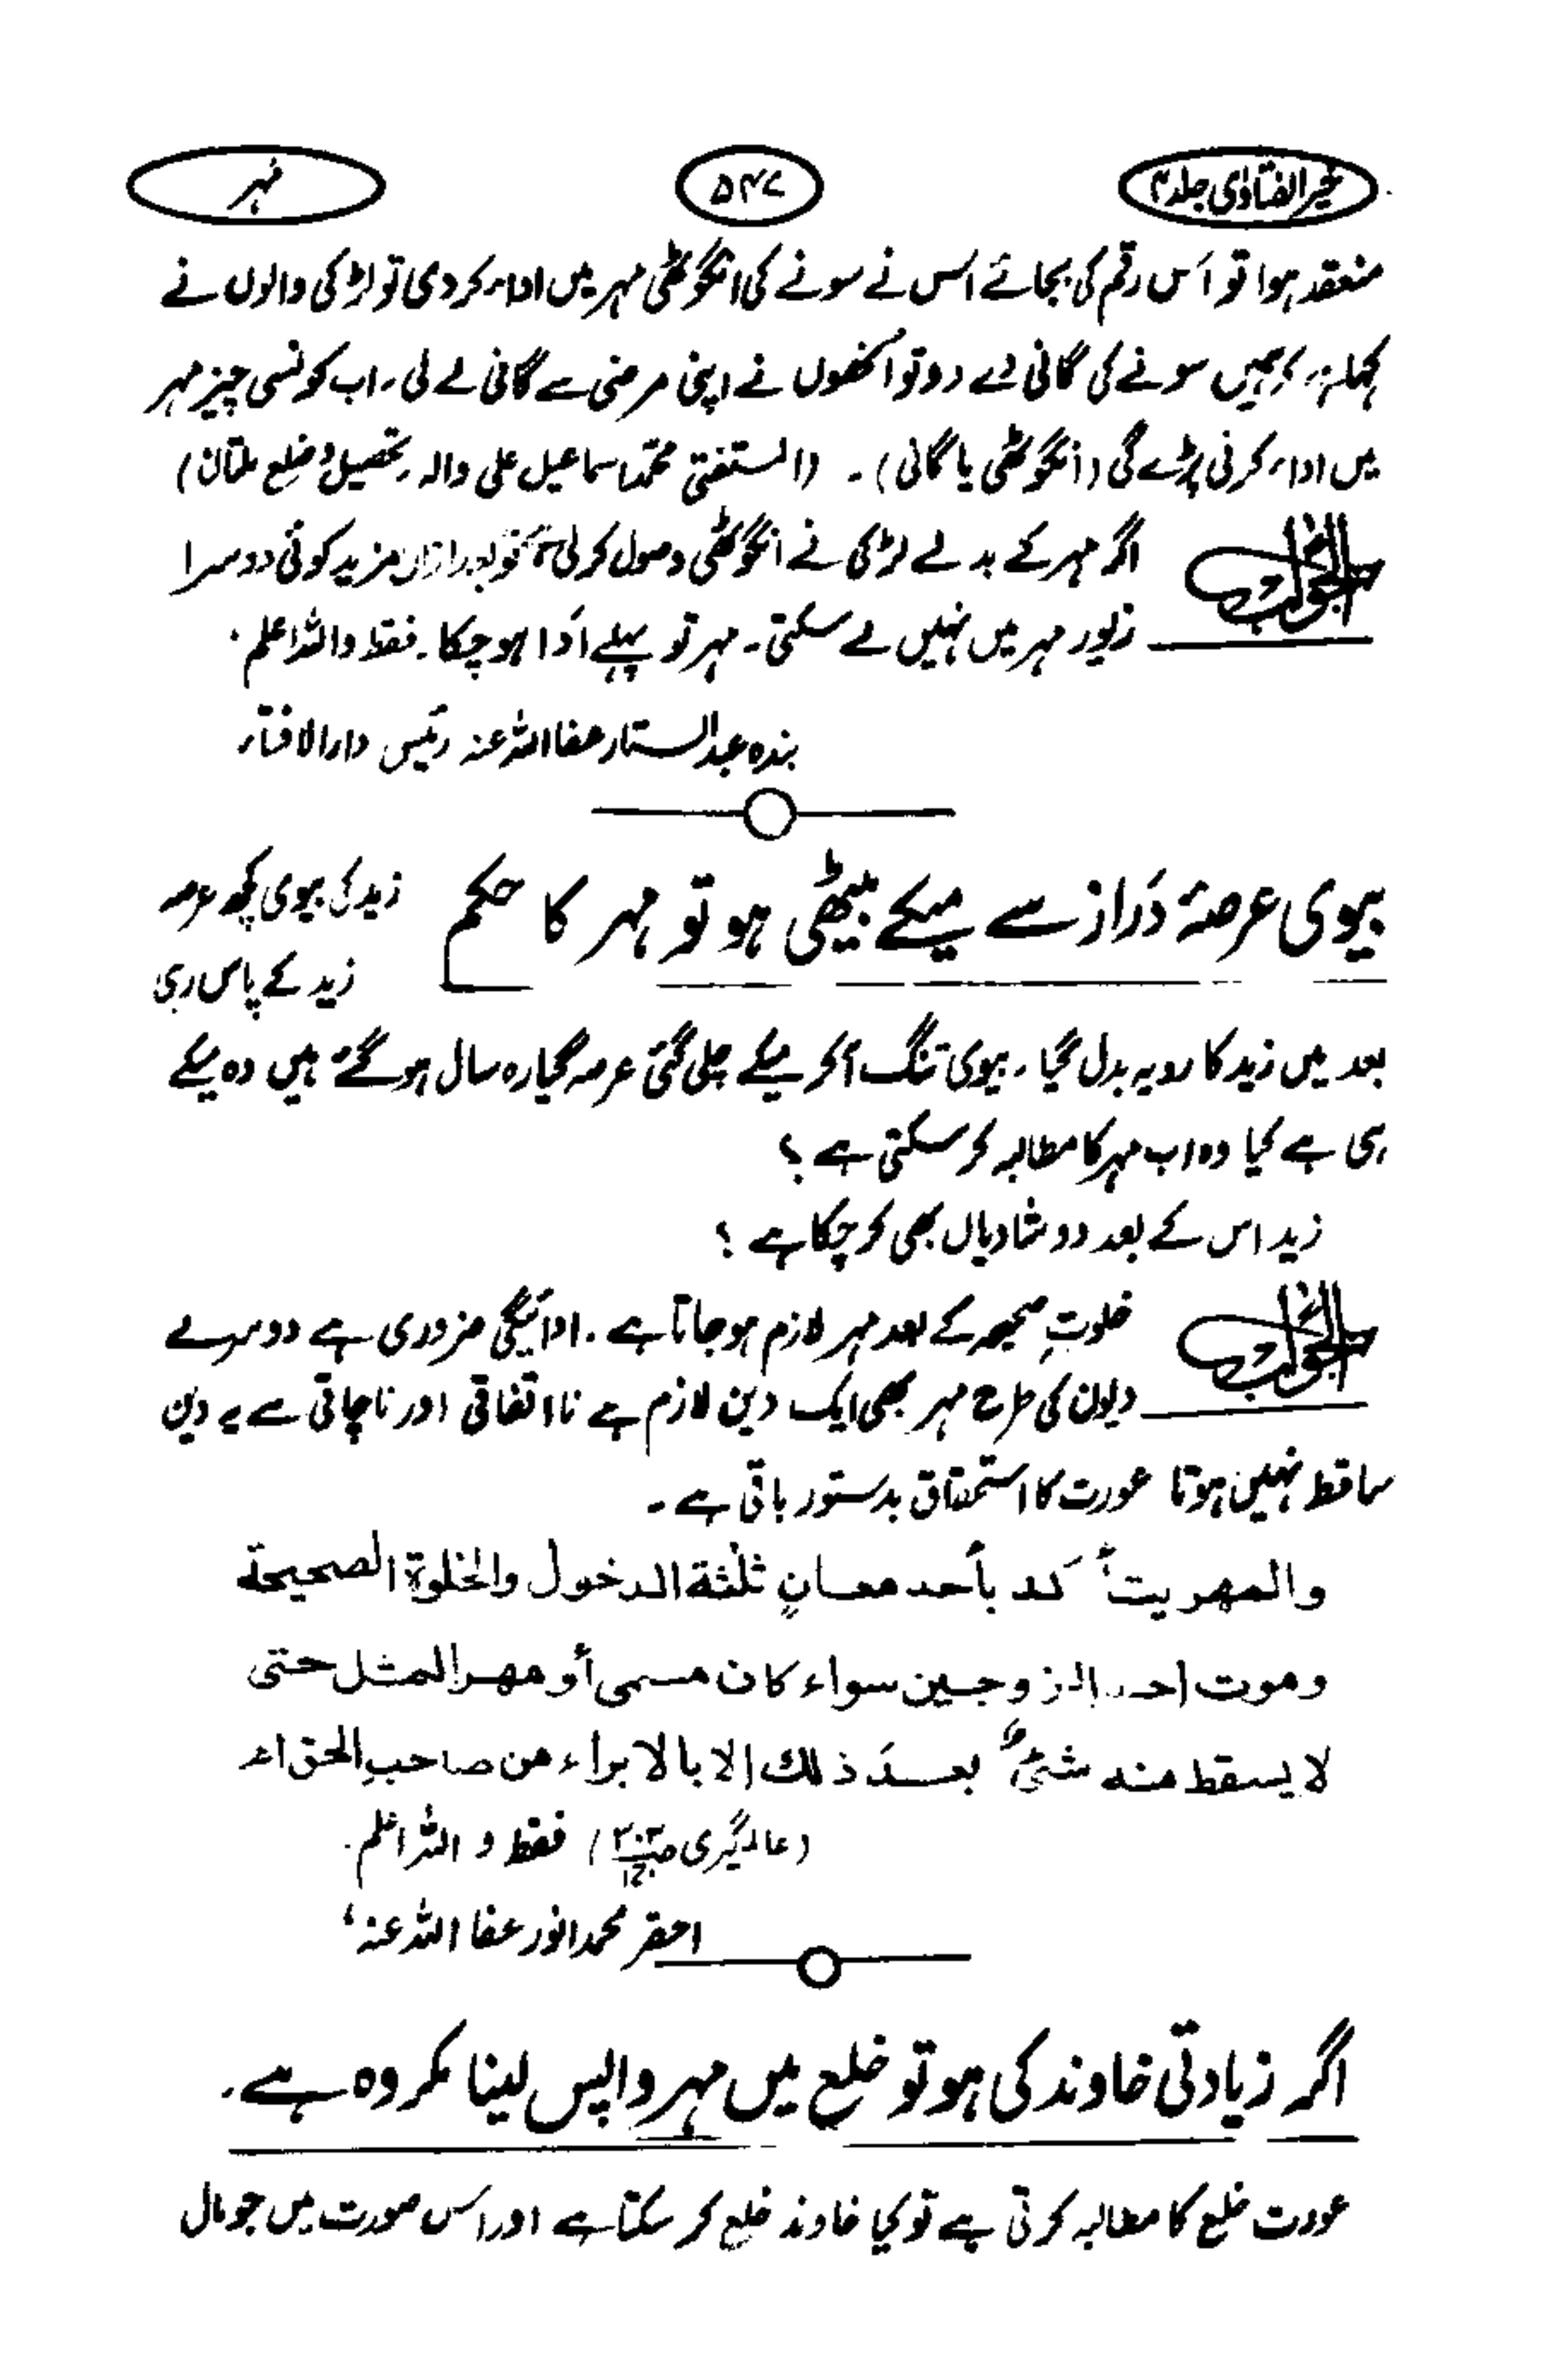 خیر الفتاوٰی جلد ۴
۵۴۷
مہر
منعقد ہوا تو اس رقم کی بجائے اس نے سونے کی انگوٹھی مہر میں ادا۔ کر دی تو لڑکی والوں نے
کہا کہ ہمیں سونے کی گانی دے دو تو انھوں نے اپنی مرضی سے گانی لے لی۔ اب کونسی چیز مہر
میں ادا۔ کرنی پڑے گی (انگوٹھی یا گانی)۔ (المستفتی محمد اسماعیل علی والہ۔ تحصیل و ضلع ملتان)
الجواب
اگر مہر کے بدلے لڑکی نے انگوٹھی وصول کر لی تو بعد ازاں مزید کوئی دوسرا
زیور مہر میں نہیں لے سکتی۔ مہر تو پہلے ادا ہو چکا۔ فقط واللہ اعلم۔
بندہ عبد الستار عفا اللہ عنہ رئیس دار الافتاء
بیوی عرصۂ دراز سے میکے بیٹھی ہو تو مہر کا حکم
زید کی بیوی کچھ عرصہ
زید کے پاس رہی
بعد میں زید کا رویہ بدل گیا۔ بیوی تنگ آ کر میکے چلی گئی عرصہ گیارہ سال ہو گئے ہیں وہ میکے
ہی ہے کیا وہ اب مہر کا مطالبہ کر سکتی ہے ؟
زید اس کے بعد دو شادیاں بھی کر چکا ہے ؟
الجواب
خلوتِ صحیحہ کے بعد مہر لازم ہو جاتا ہے۔ ادائیگی ضروری ہے دوسرے
دیون کی طرح مہر بھی ایک دین لازم ہے نا اتفاقی اور ناچاقی سے یہ دین
ساقط نہیں ہوتا عورت کا استحقاق بدستور باقی ہے۔
والمهر يتأكد بأحد معانٍ ثلثة الدخول والخلوة الصحيحة
وموت احد الزوجين سواء كان مسمى أو مهر المثل حتى
لا يسقط منه شئٌ بعدَ ذلك إلا بالابراء من صاحبِ الحق اھ
(عالمگیری) فقط و اللہ اعلم۔
احقر محمد انور عفا اللہ عنہ
اگر زیادتی خاوند کی ہو تو خلع میں مہر واپس لینا مکروہ ہے۔
عورت خلع کا مطالبہ کرتی ہے تو کیا خاوند خلع کر سکتا ہے اور اس صورت میں جو مال